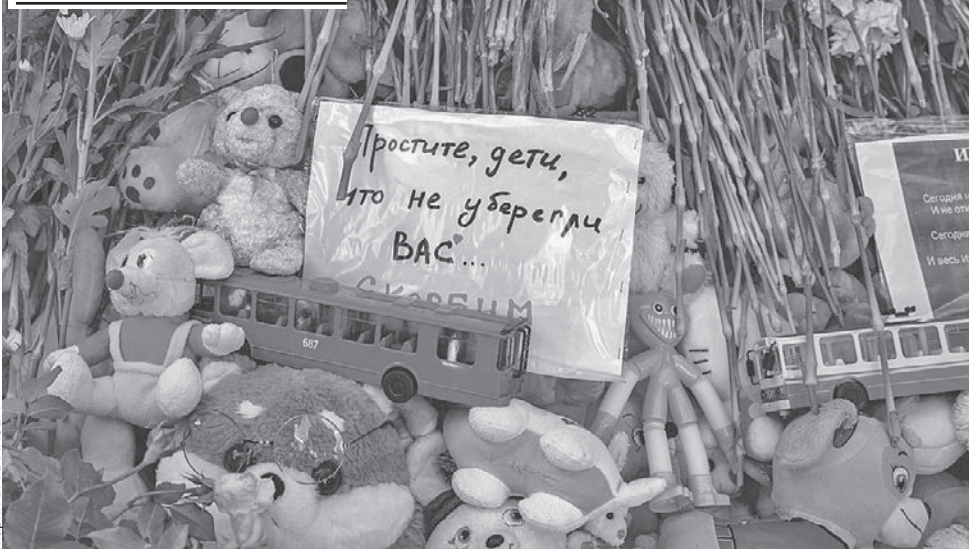 Простите, дети,
что не уберегли
ВАС...
СКОРБИМ
687
Сегодня
И не
Сегодня
И весь